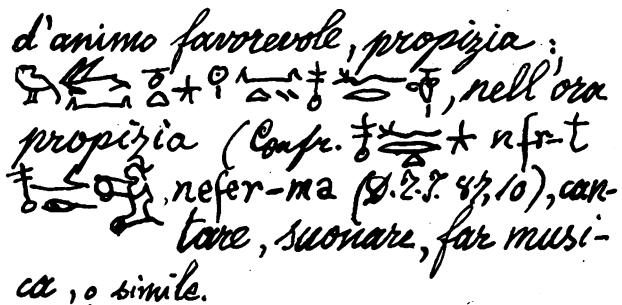 d'animo favorevole, propizia;
, nell'ora
propizia (Confr. nfr-t
, nefer-ma (D.Z.I. 87,10), can-
tare, suonare, far musi-
ca, o simile.